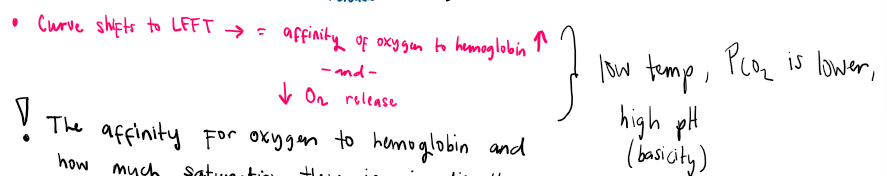 • Curve shifts to LEFT → = affinity of oxygen to hemoglobin ↑
- and -
↓ O2 release
low temp, PCO2 is lower,
high pH
(basicity)
! The affinity for oxygen to hemoglobin and
how much